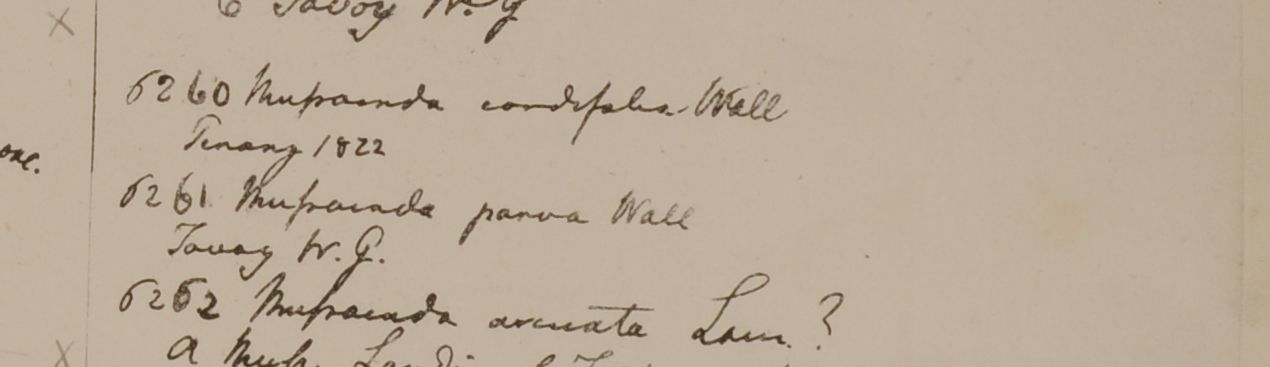 C Tavoy W. G
6260 Mussaenda cordifolia Wall
Penang 1822
one.
6261 Mussaenda parva Wall
Tavoy W. G.
6262 Mussaenda arcuata Lam. ?
a Muss.